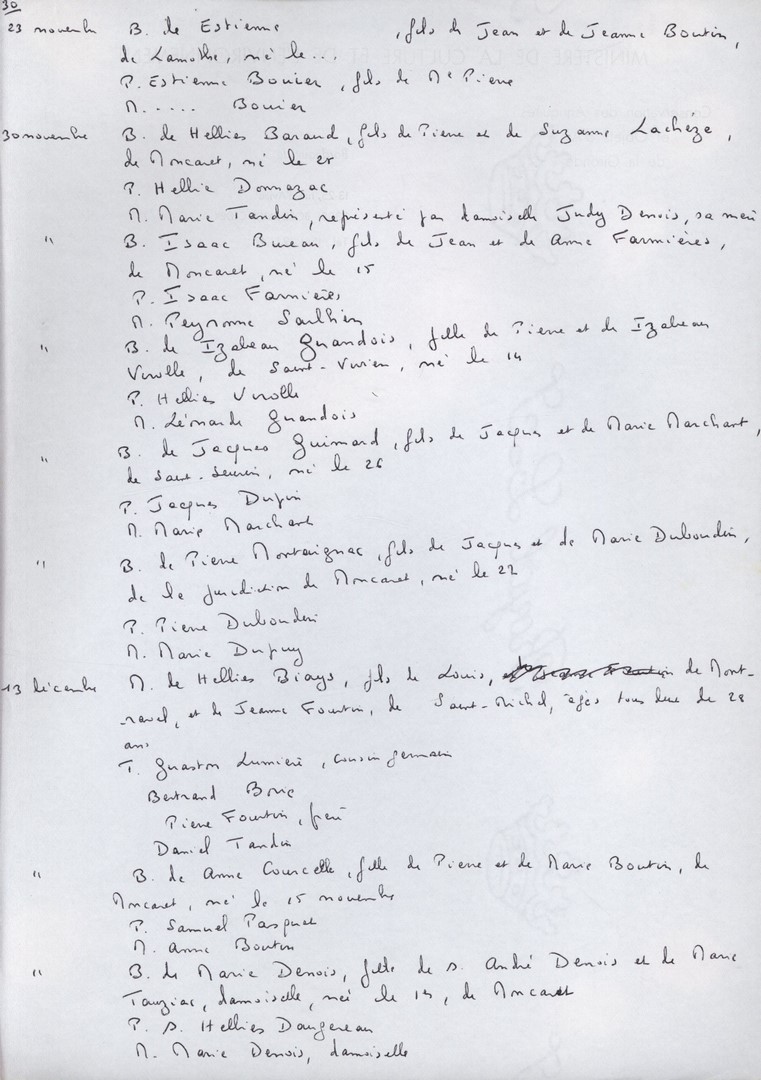 30
23 novembre B. de Estienne , fils de Jean et de Jeanne Boutin,
de Lamothe, né le...
P. Estienne Bouier, fils de Me Pierre
M. ..... Bouier
30 novembre B. de Hellies Barand, fils de Pierre et de Suzanne Lachèze,
de Moncaret, né le 25
P. Hellie Donnazac
M. Marie Tandin, représenté par damoiselle Judy Denois, sa mère
" B. Isaac Bureau, fils de Jean et de Anne Farmières,
de Moncaret, né le 15
P. Isaac Farmières
M. Peyronne Saulhier
" B. de Izabeau Grandois, fille de Pierre et de Izabeau
Virolle, de Saint-Vivien, né le 14
P. Hellies Virolle
M. Léonarde Grandois
" B. de Jacques Guimard, fils de Jacques et de Marie Marchant,
de Saint-Seurin, né le 26
P. Jacques Dupin
M. Marie Marchant
" B. de Pierre Montaignac, fils de Jacques et de Marie Duboudin,
de la jurdiction de Moncaret, né le 22
P. Pierre Duboudin
M. Marie Dupuy
13 décembre M. de Hellies Biays, fils de Louis, de Mont-
ravel, et de Jeanne Fourtin, de Saint-Michel, âgés tous deux de 28
ans
T. Guaston Lumière, cousin germain
Bertrand Boric
Pierre Fourtin, père
Daniel Tandin
" B. de Anne Courcelle, fille de Pierre et de Marie Boutin, de
Moncaret, né le 15 novembre
P. Samuel Pasquet
M. Anne Boutin
" B. de Marie Denois, fille de s. André Denois et de Marie
Tauziac, damoiselle, née le 14, de Moncaret
P. s. Hellies Daugereau
M. Marie Denois, damoiselle